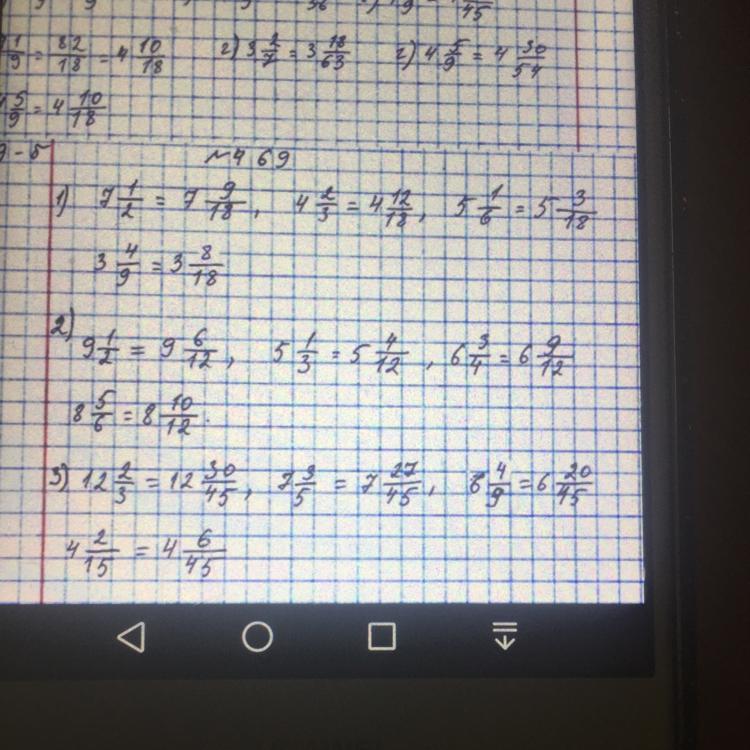 = 82/18 = 4 10/18   г) 3 2/7 = 3 18/63   г) 4 5/9 = 4 30/54
5/9 = 4 10/18
№469
1) 7 1/2 = 7 9/18, 4 2/3 = 4 12/18, 5 1/6 = 5 3/18
3 4/9 = 3 8/18
2) 9 1/2 = 9 6/12, 5 1/3 = 5 4/12, 6 3/4 = 6 9/12
8 5/6 = 8 10/12.
3) 12 2/3 = 12 30/45, 7 3/5 = 7 27/45, 6 4/9 = 6 20/45
4 2/15 = 4 6/45